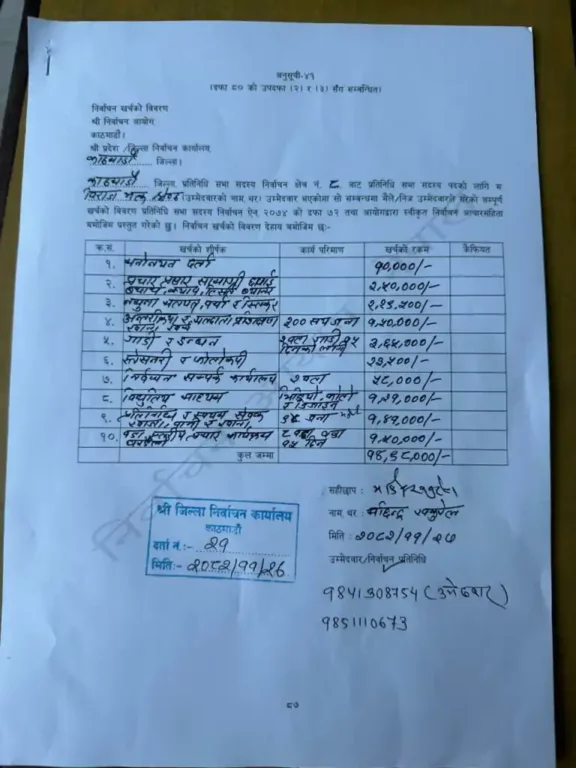 अनुसूची-४१
(दफा ८० को उपदफा (२) र (३) सँग सम्बन्धित)
निर्वाचन खर्चको विवरण
श्री निर्वाचन आयोग
काठमाडौं।
श्री प्रदेश /जिल्ला निर्वाचन कार्यालय,
काठमाडौं जिल्ला।
काठमाडौं जिल्ला, प्रतिनिधि सभा सदस्य निर्वाचन क्षेत्र नं. ८ बाट प्रतिनिधि सभा सदस्य पदको लागि म
विराज भक्त श्रेष्ठ (उम्मेदवारको नाम, थर) उम्मेदवार भएकोमा सो सम्बन्धमा मैले/निज उम्मेदवारले गरेको सम्पूर्ण
खर्चको विवरण प्रतिनिधि सभा सदस्य निर्वाचन ऐन, २०७४ को दफा ७२ तथा आयोगद्वारा स्वीकृत निर्वाचन आचारसंहिता
बमोजिम प्रस्तुत गरेको छु। निर्वाचन खर्चको विवरण देहाय बमोजिम छ:-
क्र.सं. खर्चको शीर्षक कार्य परिमाण खर्चको रकम कैफियत
१. मनोनयन दर्ता १०,०००/-
२. प्रचार प्रसार सामाग्री छपाई २,५०,०००/-
३. २,१५,५००/-
४. २०० सय जना १,५०,०००/-
५. गाडी र इन्धन २,६५,०००/-
६. स्टेसनरी र फोटोकपी २३,५००/-
७. निर्वाचन सम्पर्क कार्यालय २ वटा ५८,०००/-
८. विद्युतिय माध्यम भिडियो, फोटो र डिजाइन १,२१,०००/-
९. १,४१,०००/-
१०. १५ दिन १,५०,०००/-
कुल जम्मा
सहीछाप :
नाम, थर:
मिति : २०८२/११/२६
उम्मेदवार/निर्वाचन प्रतिनिधि
9841308754 (उमेदवार)
9851110673
श्री जिल्ला निर्वाचन कार्यालय
काठमाडौं
दर्ता नं.:- २१
मिति:- २०८२/११/२६
निर्वाचन आयोग
८७